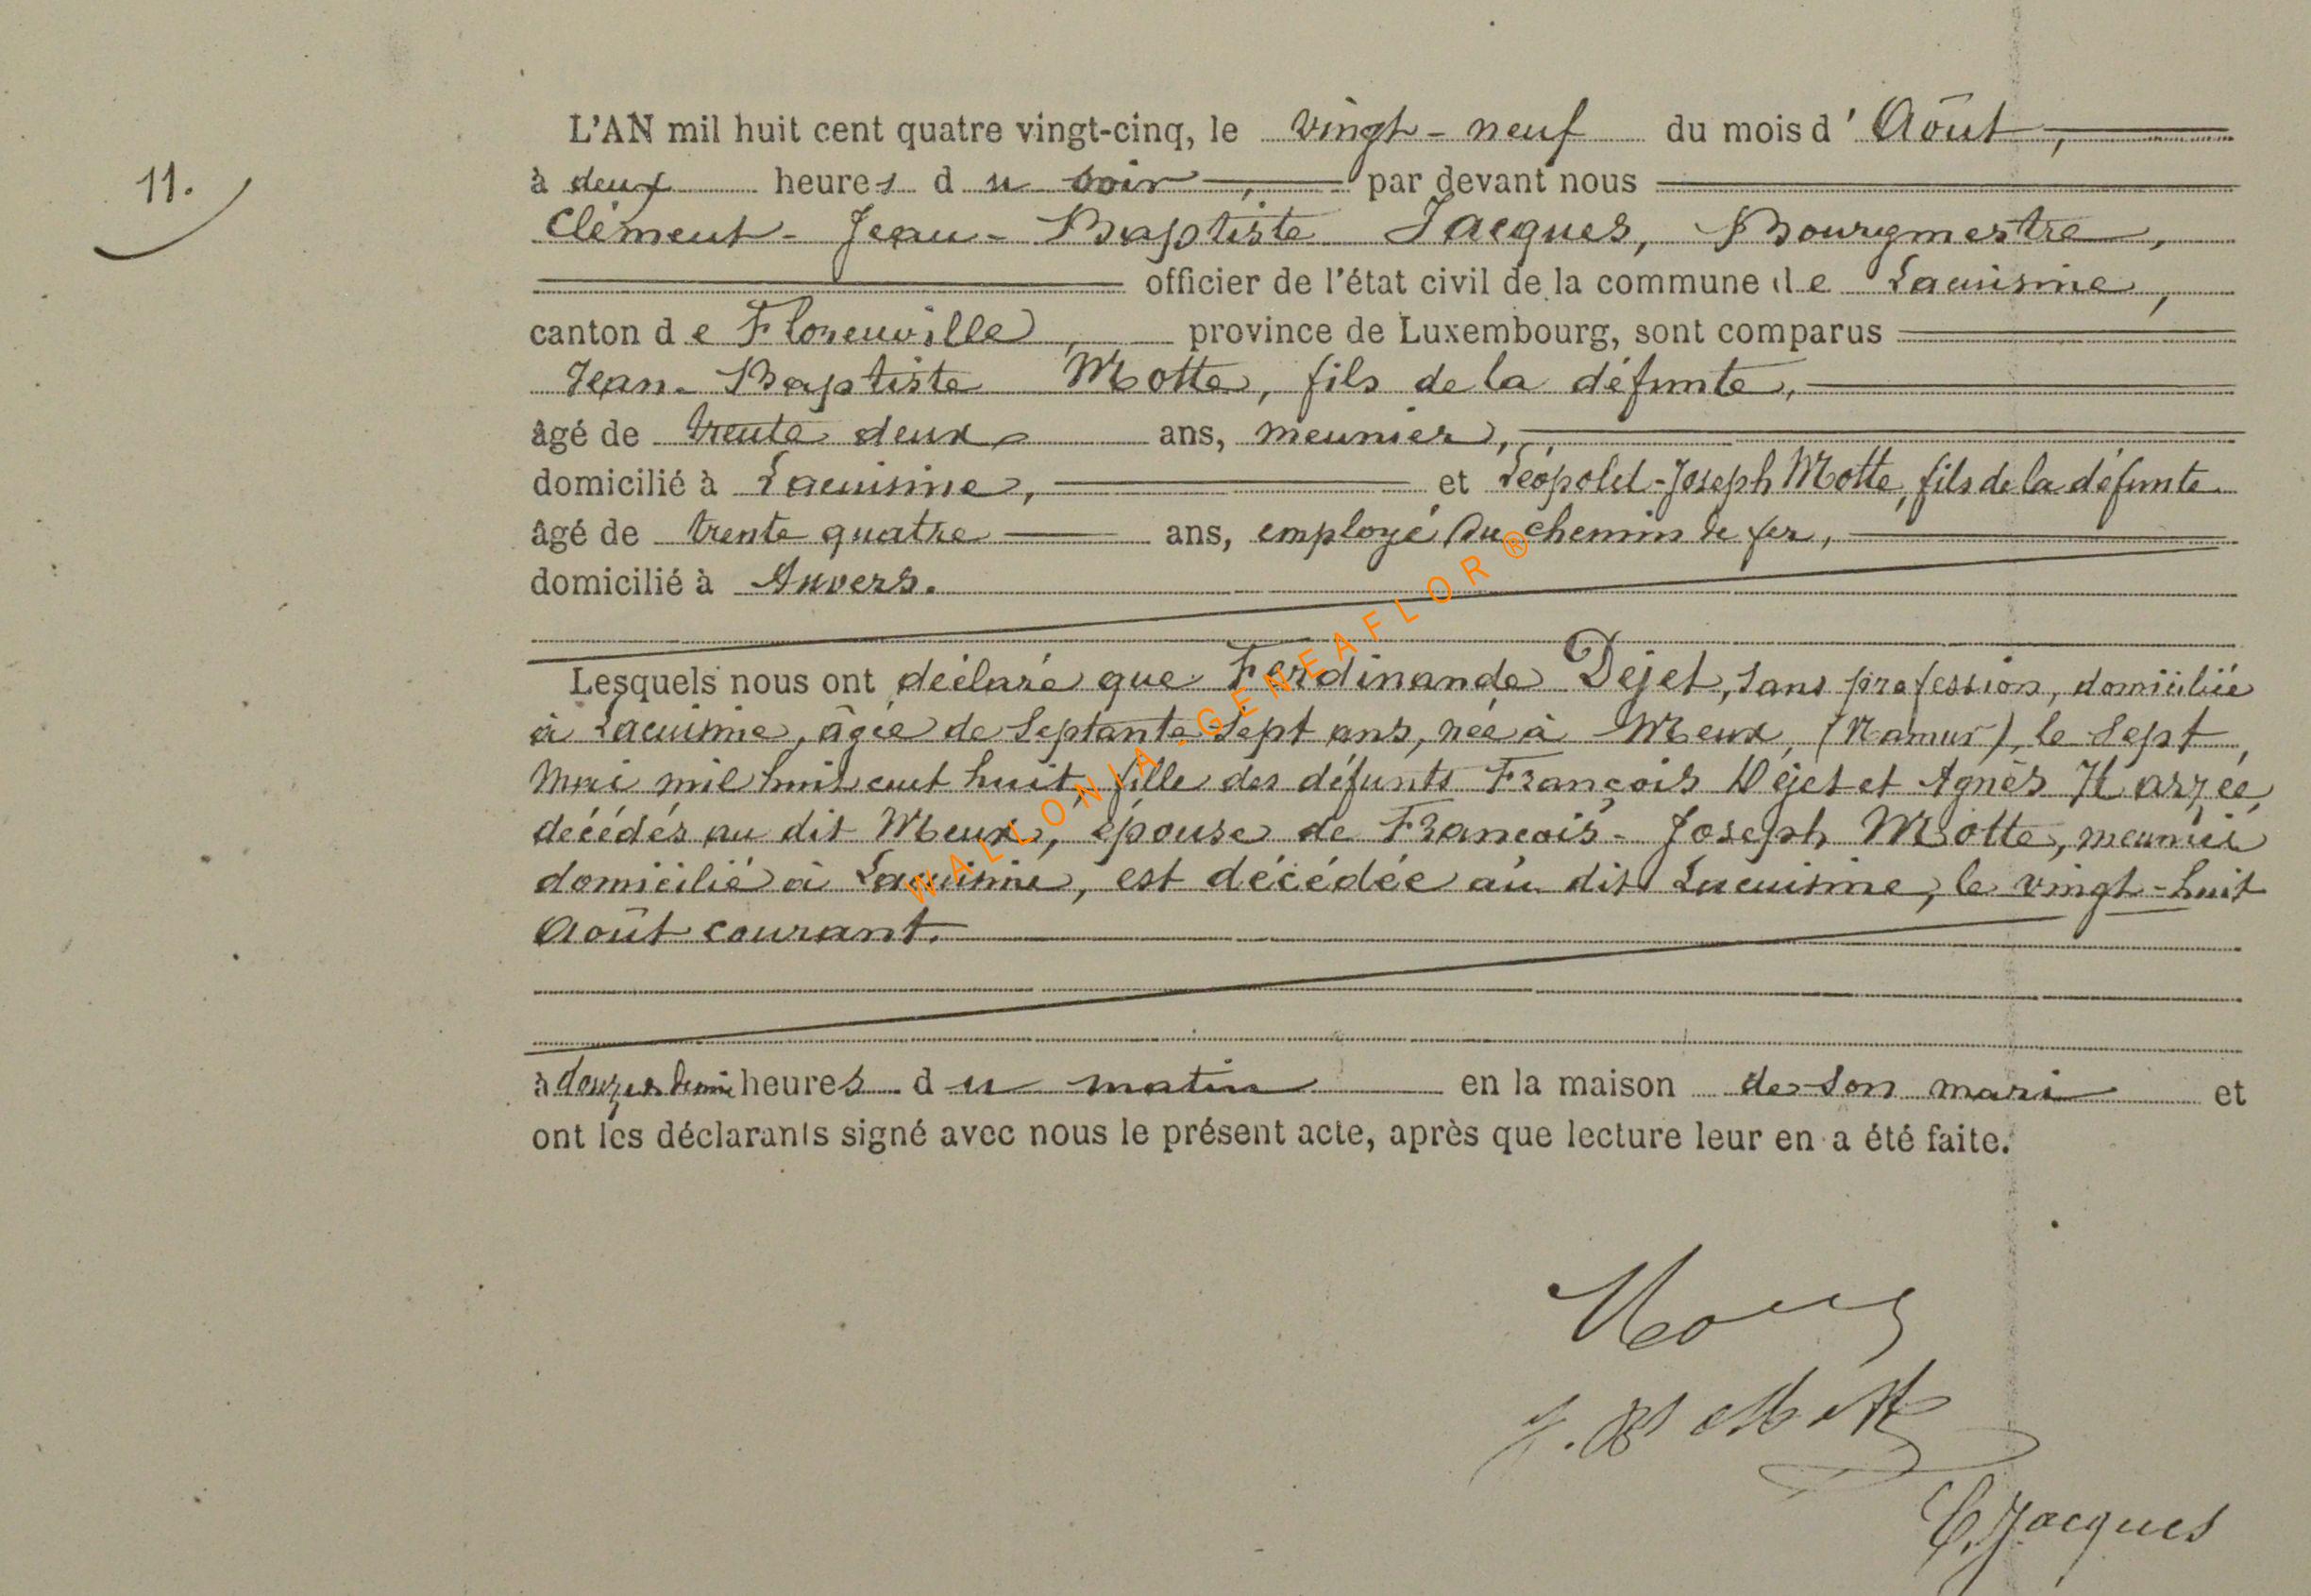 11.
L'AN mil huit cent quatre vingt-cinq, le vingt-neuf du mois d'Août,
à deux heures du soir, par devant nous
Clément-Jean-Baptiste Jacques, Bourgmestre,
officier de l'état civil de la commune de Lacuisine,
canton de Florenville, province de Luxembourg, sont comparus
Jean-Baptiste Motte, fils de la défunte,
âgé de trente deux ans, meunier,
domicilié à Lacuisine, et Léopold-Joseph Motte, fils de la défunte
âgé de trente quatre ans, employé du chemin de fer,
domicilié à Anvers.
Lesquels nous ont déclaré que Ferdinande Dejet, sans profession, domiciliée
à Lacuisine, âgée de septante sept ans, née à Meux, (Namur), le sept
mai mil huit cent huit, fille des défunts François Dejet et Agnès Harzée,
décédés au dit Meux, épouse de François-Joseph Motte, meunier
domicilié à Lacuisine, est décédée au dit Lacuisine, le vingt-huit
Août courant.
à douze et demie heures du matin en la maison de son mari et
ont les déclarants signé avec nous le présent acte, après que lecture leur en a été faite.
J. Bte Motte
C. Jacques
WALLONIA-GENEAFLOR®